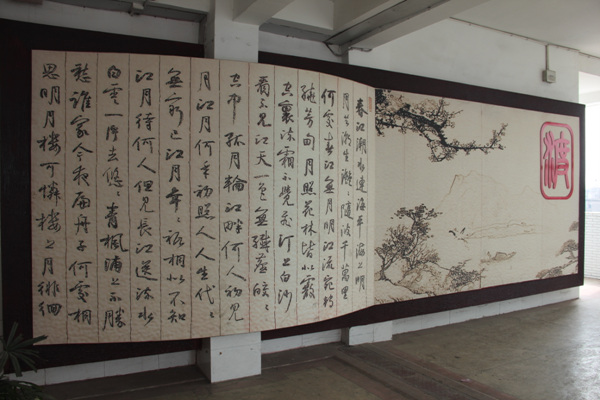 春江潮水連海平海上明
月共潮生灩〻隨波千萬里
何處春江無月明江流宛轉
繞芳甸月照花林皆似霰
空裏流霜不覺飛汀上白沙
看不見江天一色無纖塵皎〻
空中孤月輪江畔何人初見
月江月何年初照人人生代〻
無窮已江月年〻祇相似不知
江月待何人但見長江送流水
白雲一片去悠〻青楓浦上不勝
愁誰家今夜扁舟子何處相
思明月樓可憐樓上月徘徊